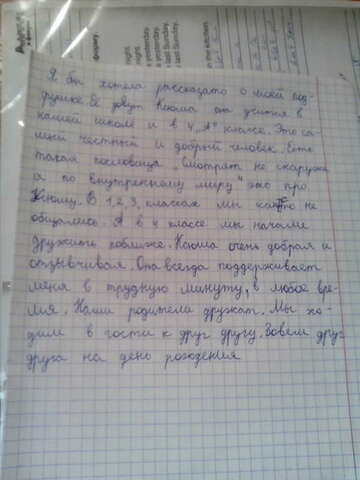 формулу.
night.
s yesterday.
s yesterday.
last Sunday.
last Sunday.
in the kitchen.
Я бы хотела рассказать о моей под-
ружке. Её зовут Ксюша она учится в
нашей школе и в 4 „А" классе. Это са-
мый честный и добрый человек. Есть
такая пословица „Смотрят не снаружи
а по внутреннему миру" это про
Ксюшу. В 1,2,3, классах мы как то не
общались. А в 4 классе мы начали
дружить поближе. Ксюша очень добрая и
отзывчивая. Она всегда поддерживает
меня в трудную минуту, в любое вре-
мя. Наши родители дружат. Мы хо-
дим в гости к друг другу. Зовём друг
друга на день рождения